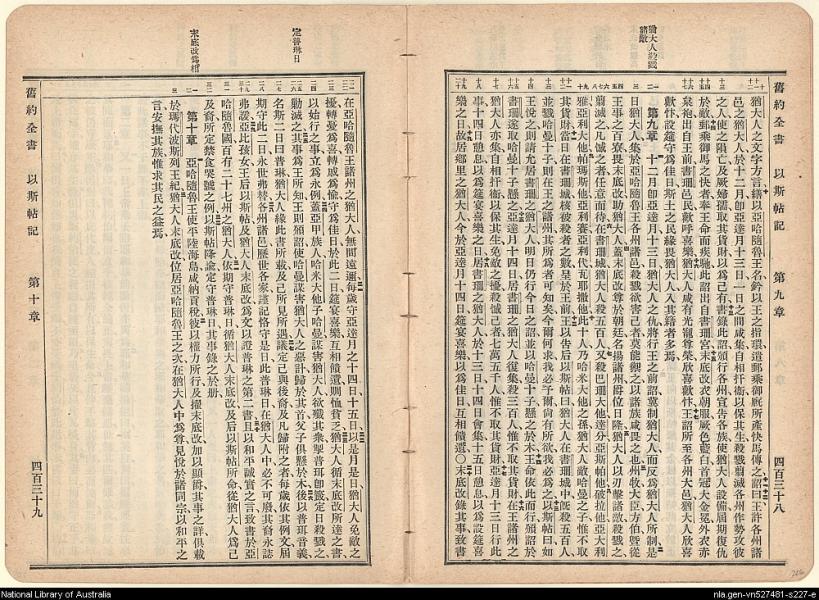 舊約全書 以斯帖記 第九章 四百三十八
猶大人之文字方言繕以亞哈隨魯王名鈐以王之指環遣郵乘御厩所產快馬傳之詔曰王許各州諸
邑之猶大人於十二月卽亞達月十三日一日之間咸集自相扞衞以保其生殺戮翦滅各州作勢攻彼
之人使之隕亡及厥婦孺取其貨財以爲己有書錄此詔頒行各州宣告各族使猶大人設備屆期復仇
於敵郵乘御馬之快者奉王命而疾馳此詔出自書珊宮末底改衣朝服厥色藍白首冠大金冕外衣赤
枲袍出自王前書珊邑民歡呼喜樂猶大人咸有光寵尊榮欣喜歡忭王詔所至各州大邑猶大人欣喜
歡忭設筵守爲佳日斯土之民緣畏猶大人入其籍者多焉
第九章 十二月卽亞達月十三日猶大人之仇將行王之前詔冀制猶大人而反爲猶大人所制是
日猶大人集於亞哈隨魯王各州諸邑殺戮欲害己者莫能禦之以諸族咸畏之也州牧大臣方伯曁從
王事之百寮畏末底改助猶大人蓋末底改尊於朝廷名揚諸州爵位日隆猶大人以刃擊諸敵殺戮之
翦滅之凡憾之者任意而待在書珊城猶大人殺五百人又殺巴珊大他達分亞斯帕他破拉他亞大利
雅亞利大他帕瑪斯他亞利賽亞利代瓦耶撒他此十人乃哈米大他之孫猶大人敵哈曼之子惟不取
其貨財當日在書珊城核彼殺者之數呈於王前王以告后以斯帖曰猶大人在書珊城中旣殺五百人
並戮哈曼十子則在王之諸州其所爲者可知矣今爾何求我必予爾尙有所欲我必爲之以斯帖曰如
王悅之則請允居書珊之猶大人明日仍行今日之詔並以哈曼十子懸之於木王命依此而行頒詔於
書珊遂取哈曼十子懸之亞達月十四日居書珊之猶大人復集殺三百人惟不取其貨財在王諸州之
猶大人亦集自相扞衞以保其生免敵之擾殺憾己者七萬五千人惟不取其貨財亞達月十三日行此
事十四日憩息以爲筵宴喜樂之日居書珊之猶大人於十三日十四日會集十五日憩息以爲設筵喜
樂之日故居鄉里之猶大人今於亞達月十四日筵宴喜樂以爲佳日互相饋遺○末底改錄其事致書
猶大人殺戮諸敵
舊約全書 以斯帖記 第十章 四百三十九
在亞哈隨魯王諸州之猶大人無間遠邇每歲守亞達月之十四日十五日以是月是日猶大人免敵之
擾轉憂爲喜轉戚爲愉守爲佳日於此二日筵宴喜樂互相饋遺賙恤貧乏猶大人循末底改所達之書
以始行之事立爲永例蓋亞甲族人哈米大他子哈曼謀害猶大人欲殲其衆掣普珥卽籤定日殺戮之
勦滅之其事爲王所知王則頒詔使哈曼謀害猶大人之惡計歸於其首父子俱懸於木後以普珥音義
名斯二日曰普琳猶大人緣此書所載及己所見所遇議定己與後裔及凡歸附之者每歲依其例文屆
期守此二日永世弗替各州諸邑歷世各家謹記恪守是日此普琳日在猶大人中必不可廢其裔永誌
弗諼亞比孩女王后以斯帖及猶大人末底改爲文以證普琳之第二書且以和平誠實之言致書於亞
哈隨魯國百有二十七州之猶大人依期守普琳日循猶大人末底改及后以斯帖所命從猶大人爲己
及裔所定禁食哭號之例以斯帖降諭定守普琳日其事錄之於册
第十章 亞哈隨魯王使平陸海島咸納貢稅彼以權力所行及擢末底改加以顯爵其事之詳俱載
於瑪代波斯列王紀猶大人末底改位居亞哈隨魯王之次在猶大人中爲尊見悅於諸同宗以和平之
言安撫其族惟求其民之益焉
定普琳日
末底改爲相
National Library of Australia
nla.gen-vn527481-s227-e